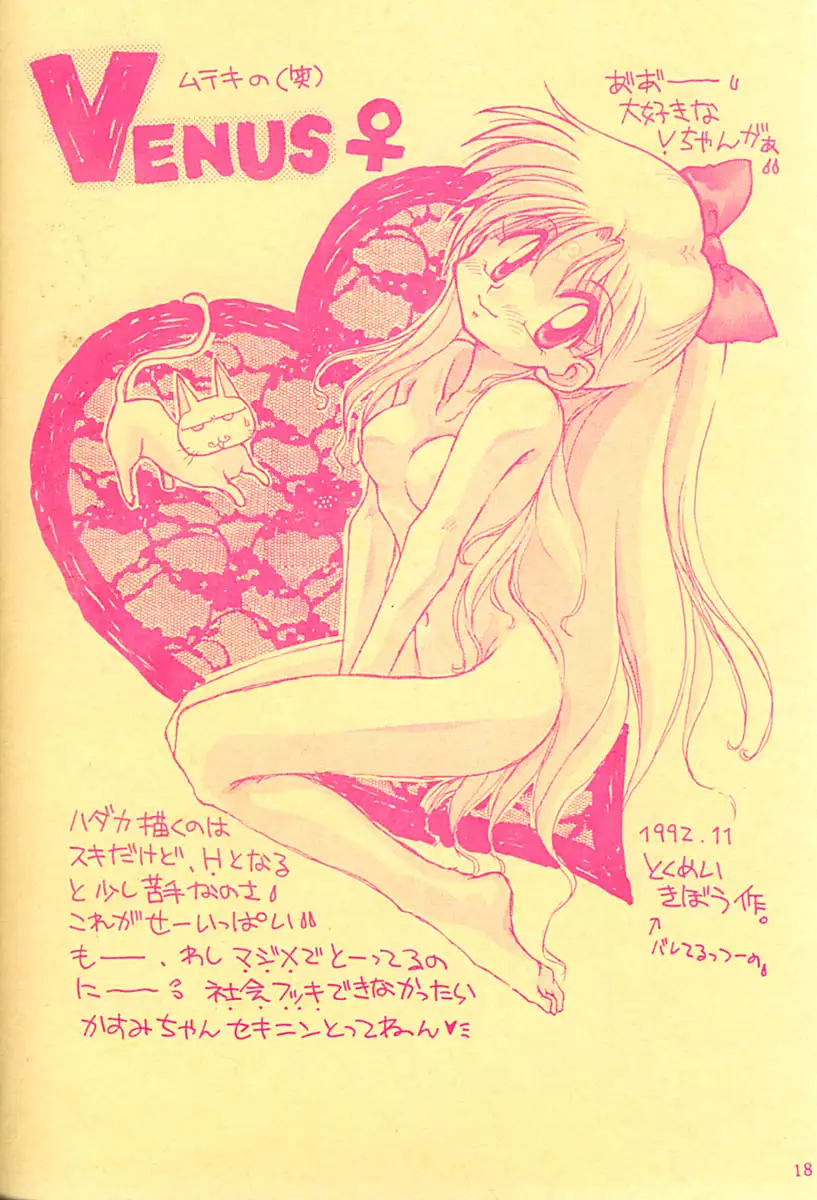 ムテキの(笑)
VENUS♀
あ゛あ゛ーー!!
大好きな
Vちゃんがぁ
ハダカ描くのは
スキだけど、Hとなる
と少し苦手なのさ!
これがせーいっぱい!!
もーー、わしマジメでとーってるの
にーー。社会フッキできなかったらい
かすみちゃんセキニンとってね〜ん♥
1992.11
とくめい
きぼう作。
↑
バレてるっつーの!
18